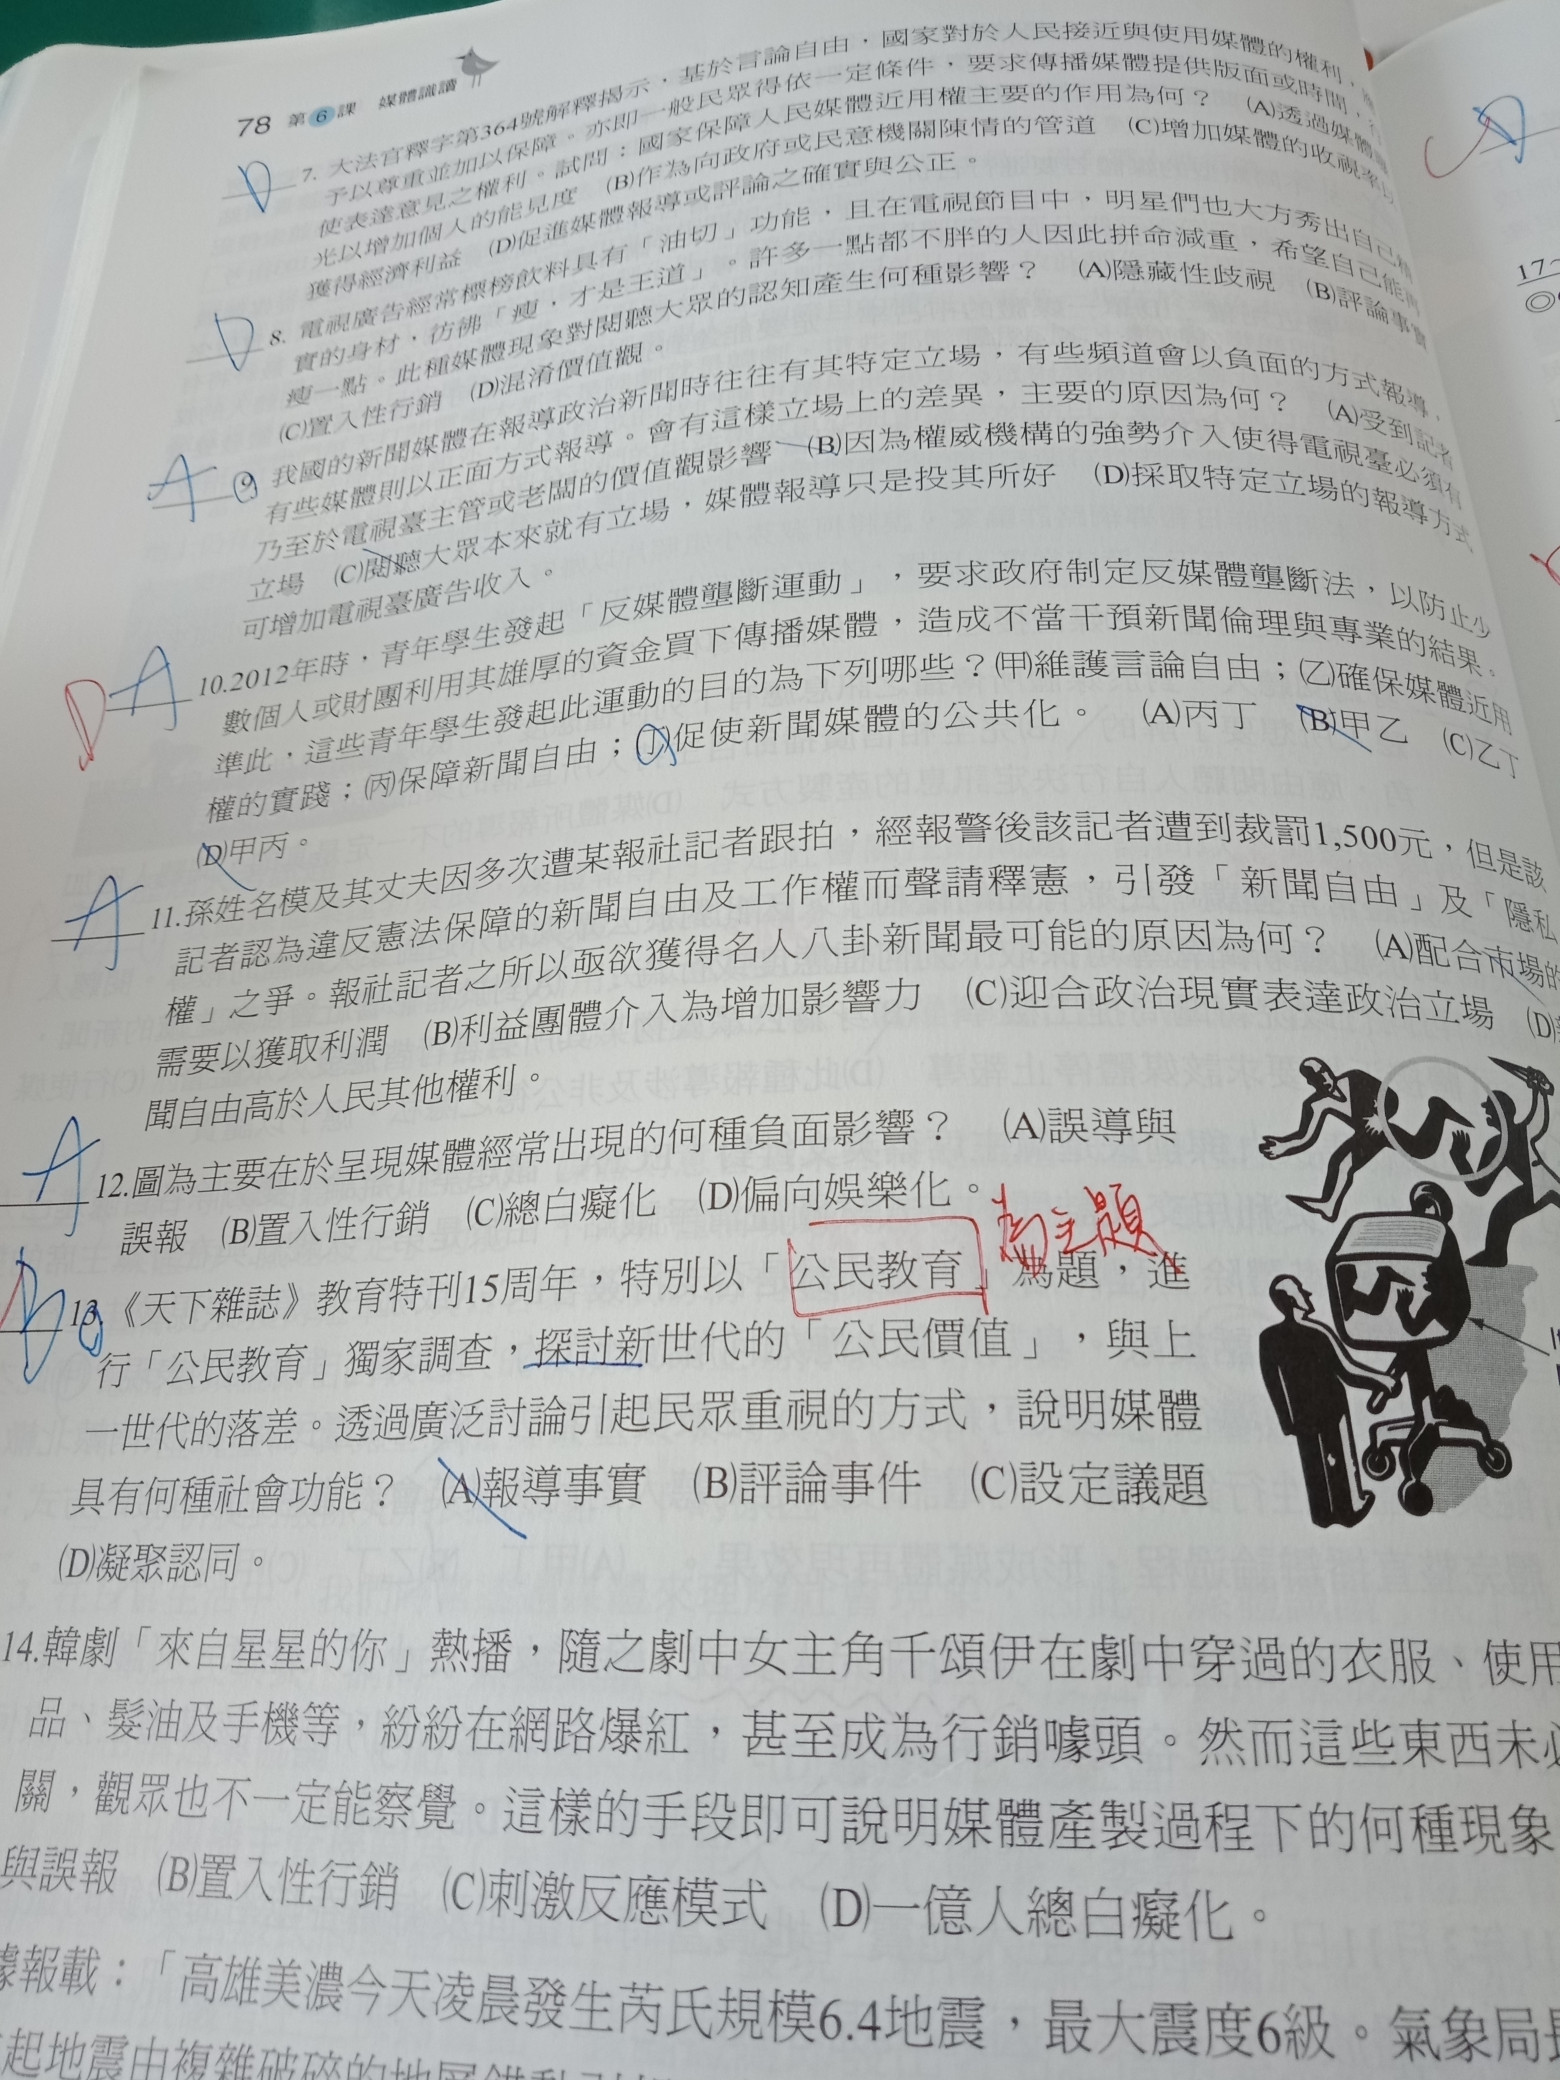 78 第6課 媒體識讀
D 7. 大法官釋字第364號解釋揭示，基於言論自由，國家對於人民接近與使用媒體的權利，應
予以尊重並加以保障。亦即一般民眾得依一定條件，要求傳播媒體提供版面或時間，
使表達意見之權利。試問：國家保障人民媒體近用權主要的作用為何？ (A)透過媒體
光以增加個人的能見度 (B)作為向政府或民意機關陳情的管道 (C)增加媒體的收視率以
獲得經濟利益 (D)促進媒體報導或評論之確實與公正。
D 8. 電視廣告經常標榜飲料具有「油切」功能，且在電視節目中，明星們也大方秀出自己
實的身材，彷彿「瘦，才是王道」。許多一點都不胖的人因此拼命減重，希望自己能再
瘦一點。此種媒體現象對閱聽大眾的認知產生何種影響？ (A)隱藏性歧視 (B)評論事實
(C)置入性行銷 (D)混淆價值觀。
A 9. 我國的新聞媒體在報導政治新聞時往往有其特定立場，有些頻道會以負面的方式報導，
有些媒體則以正面方式報導。會有這樣立場上的差異，主要的原因為何？ (A)受到記者
乃至於電視臺主管或老闆的價值觀影響 (B)因為權威機構的強勢介入使得電視臺必須有
立場 (C)閱聽大眾本來就有立場，媒體報導只是投其所好 (D)採取特定立場的報導方式
可增加電視臺廣告收入。
D A 10.2012年時，青年學生發起「反媒體壟斷運動」，要求政府制定反媒體壟斷法，以防止少
數個人或財團利用其雄厚的資金買下傳播媒體，造成不當干預新聞倫理與專業的結果。
準此，這些青年學生發起此運動的目的為下列哪些？(甲)維護言論自由；(乙)確保媒體近用
權的實踐；(丙)保障新聞自由；(丁)促使新聞媒體的公共化。 (A)丙丁 (B)甲乙 (C)乙丁
(D)甲丙。
A 11.孫姓名模及其丈夫因多次遭某報社記者跟拍，經報警後該記者遭到裁罰1,500元，但是該
記者認為違反憲法保障的新聞自由及工作權而聲請釋憲，引發「新聞自由」及「隱私
權」之爭。報社記者之所以亟欲獲得名人八卦新聞最可能的原因為何？ (A)配合市場的
需要以獲取利潤 (B)利益團體介入為增加影響力 (C)迎合政治現實表達政治立場 (D)
聞自由高於人民其他權利。
A 12.圖為主要在於呈現媒體經常出現的何種負面影響？ (A)誤導與
誤報 (B)置入性行銷 (C)總白癡化 (D)偏向娛樂化。
為主題
13.《天下雜誌》教育特刊15周年，特別以「公民教育」為題，進
行「公民教育」獨家調查，探討新世代的「公民價值」，與上
一世代的落差。透過廣泛討論引起民眾重視的方式，說明媒體
具有何種社會功能？ (A)報導事實 (B)評論事件 (C)設定議題
(D)凝聚認同。
14.韓劇「來自星星的你」熱播，隨之劇中女主角千頌伊在劇中穿過的衣服、使用
品、髮油及手機等，紛紛在網路爆紅，甚至成為行銷噱頭。然而這些東西未必
關，觀眾也不一定能察覺。這樣的手段即可說明媒體產製過程下的何種現象
與誤報 (B)置入性行銷 (C)刺激反應模式 (D)一億人總白癡化。
據報載：「高雄美濃今天凌晨發生芮氏規模6.4地震，最大震度6級。氣象局
起地震由複雜破碎的地層錯動引
A
17